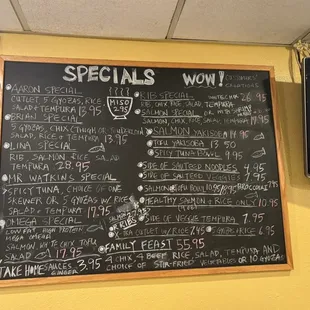 SPECIALS
AARON SPECIAL
CUTLET 5 GYOZAS, RICE
SALAD + TEMPURA 17.95
BRIAN SPECIAL
5 GYOZAS, CHIX (THIGH OR
SALAD, RICE + TEMPURA 13.95
LINA SPECIAL
RIB, SALMON RICE SALAD
TEMPURA 28.95
MR WATKINS SPECIAL
SPICY TUNA CHOICE OF ONE
SKEWER OR 5 GYOZAS W/ RICE
SALAD + TEMPURA 17.95
OMEGA SPECIAL
LOW CARB HIGH PROTEIN
MEGA OMEGA
SALMON, WHITE CHIX TOFU
SALAD
TAKE HOME SAUCES 3.95
GINGER
MISO
2.95
SALMON 19.95
OR RIBS
WOW! CUSTOMERS'
CREATIONS
RIB SPECIAL
RIB, CHIX RICE, SALAD, TEMPURA 26.95
SALMON SPECIAL
SALMON CHIX, RICE SALAD, TEMPURA
SALMON YAKISOBA 17.95
TOFU YAKISOBA 13.50
SPICY TUNA BOWL 9.95
SIDE OF SAUTEED NOODLES 7.95
SIDE OF SAUTEED VEGGIES 7.95
SALMON
HEALTHY SALMON + RICE ONLY 10.95
SIDE OF VEGGIE TEMPURA 7.95
X-TRA CUTLET W/ RICE 7.95
GYOZAS + RICE 6.95
FAMILY FEAST 55.95
4 CHIX 4 BEEF RICE, SALAD, TEMPURA AND
CHOICE OF STIR-FRIED VEGETABLES OR 10 GYOZAS